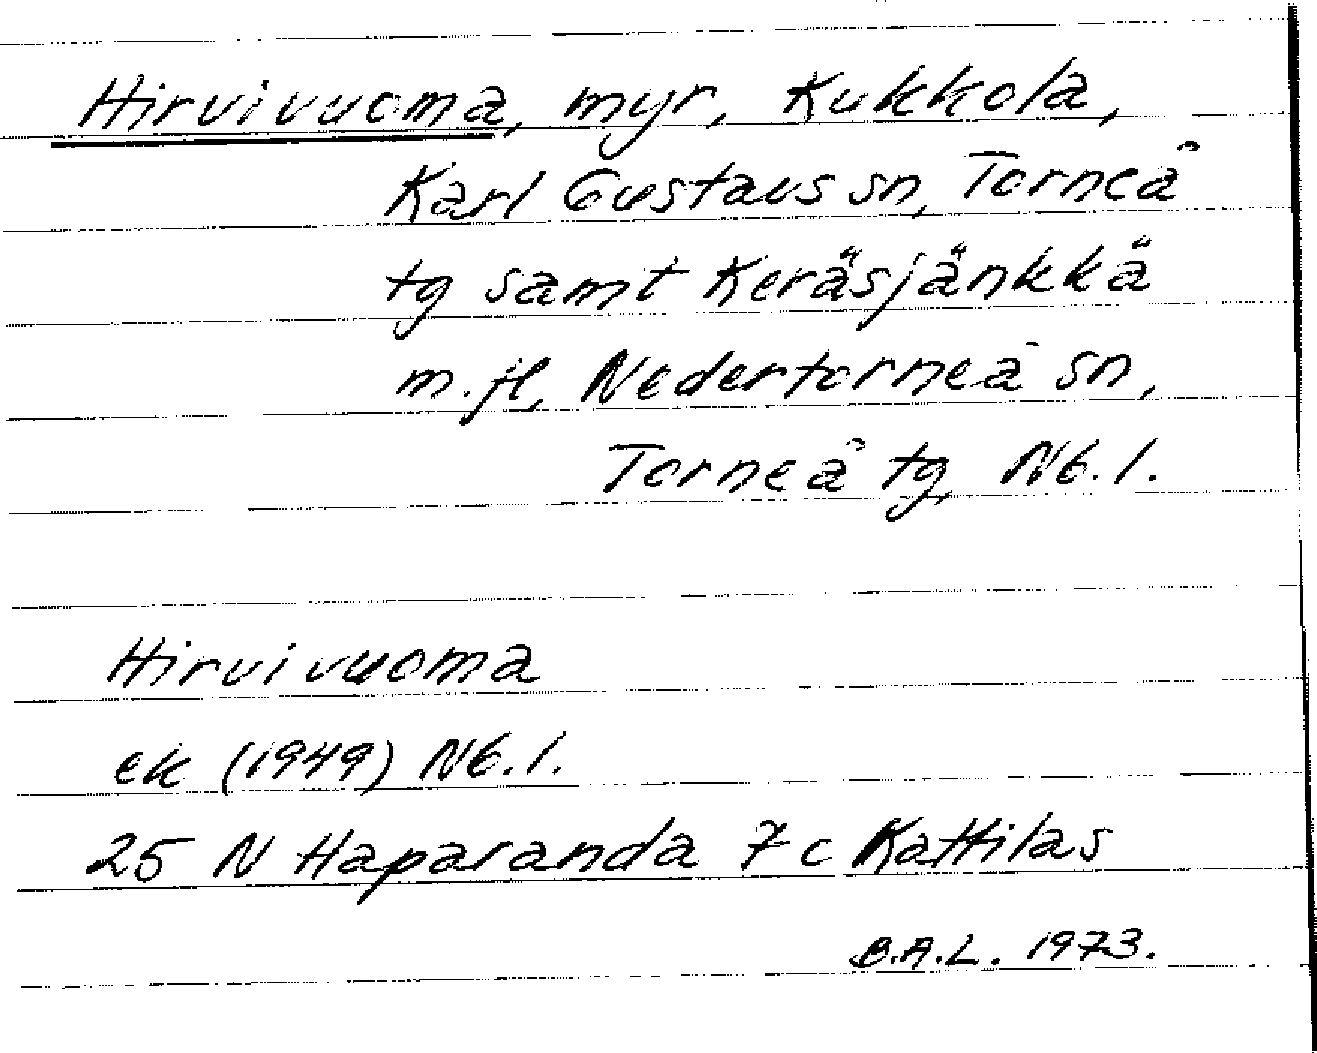 Hirvivuoma, myr, Kukkola,
Karl Gustavs sn, Torneå
tg samt Keräsjänkkä
m.fl, Nedertorneå sn,
Torneå tg, Nb.l.
Hirvivuoma
ek (1949) Nb.l.
25 N Haparanda 7c Kattilas
B.A.L. 1973.